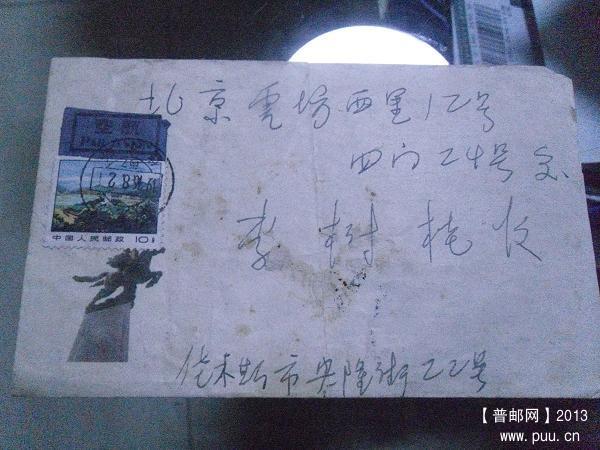 北京雲坊西里12号
四门24号交
李树桂收
航空
PAR AVION
中国人民邮政 10分
佳木斯市安隆街22号
【普邮网】2013
www.puu.cn